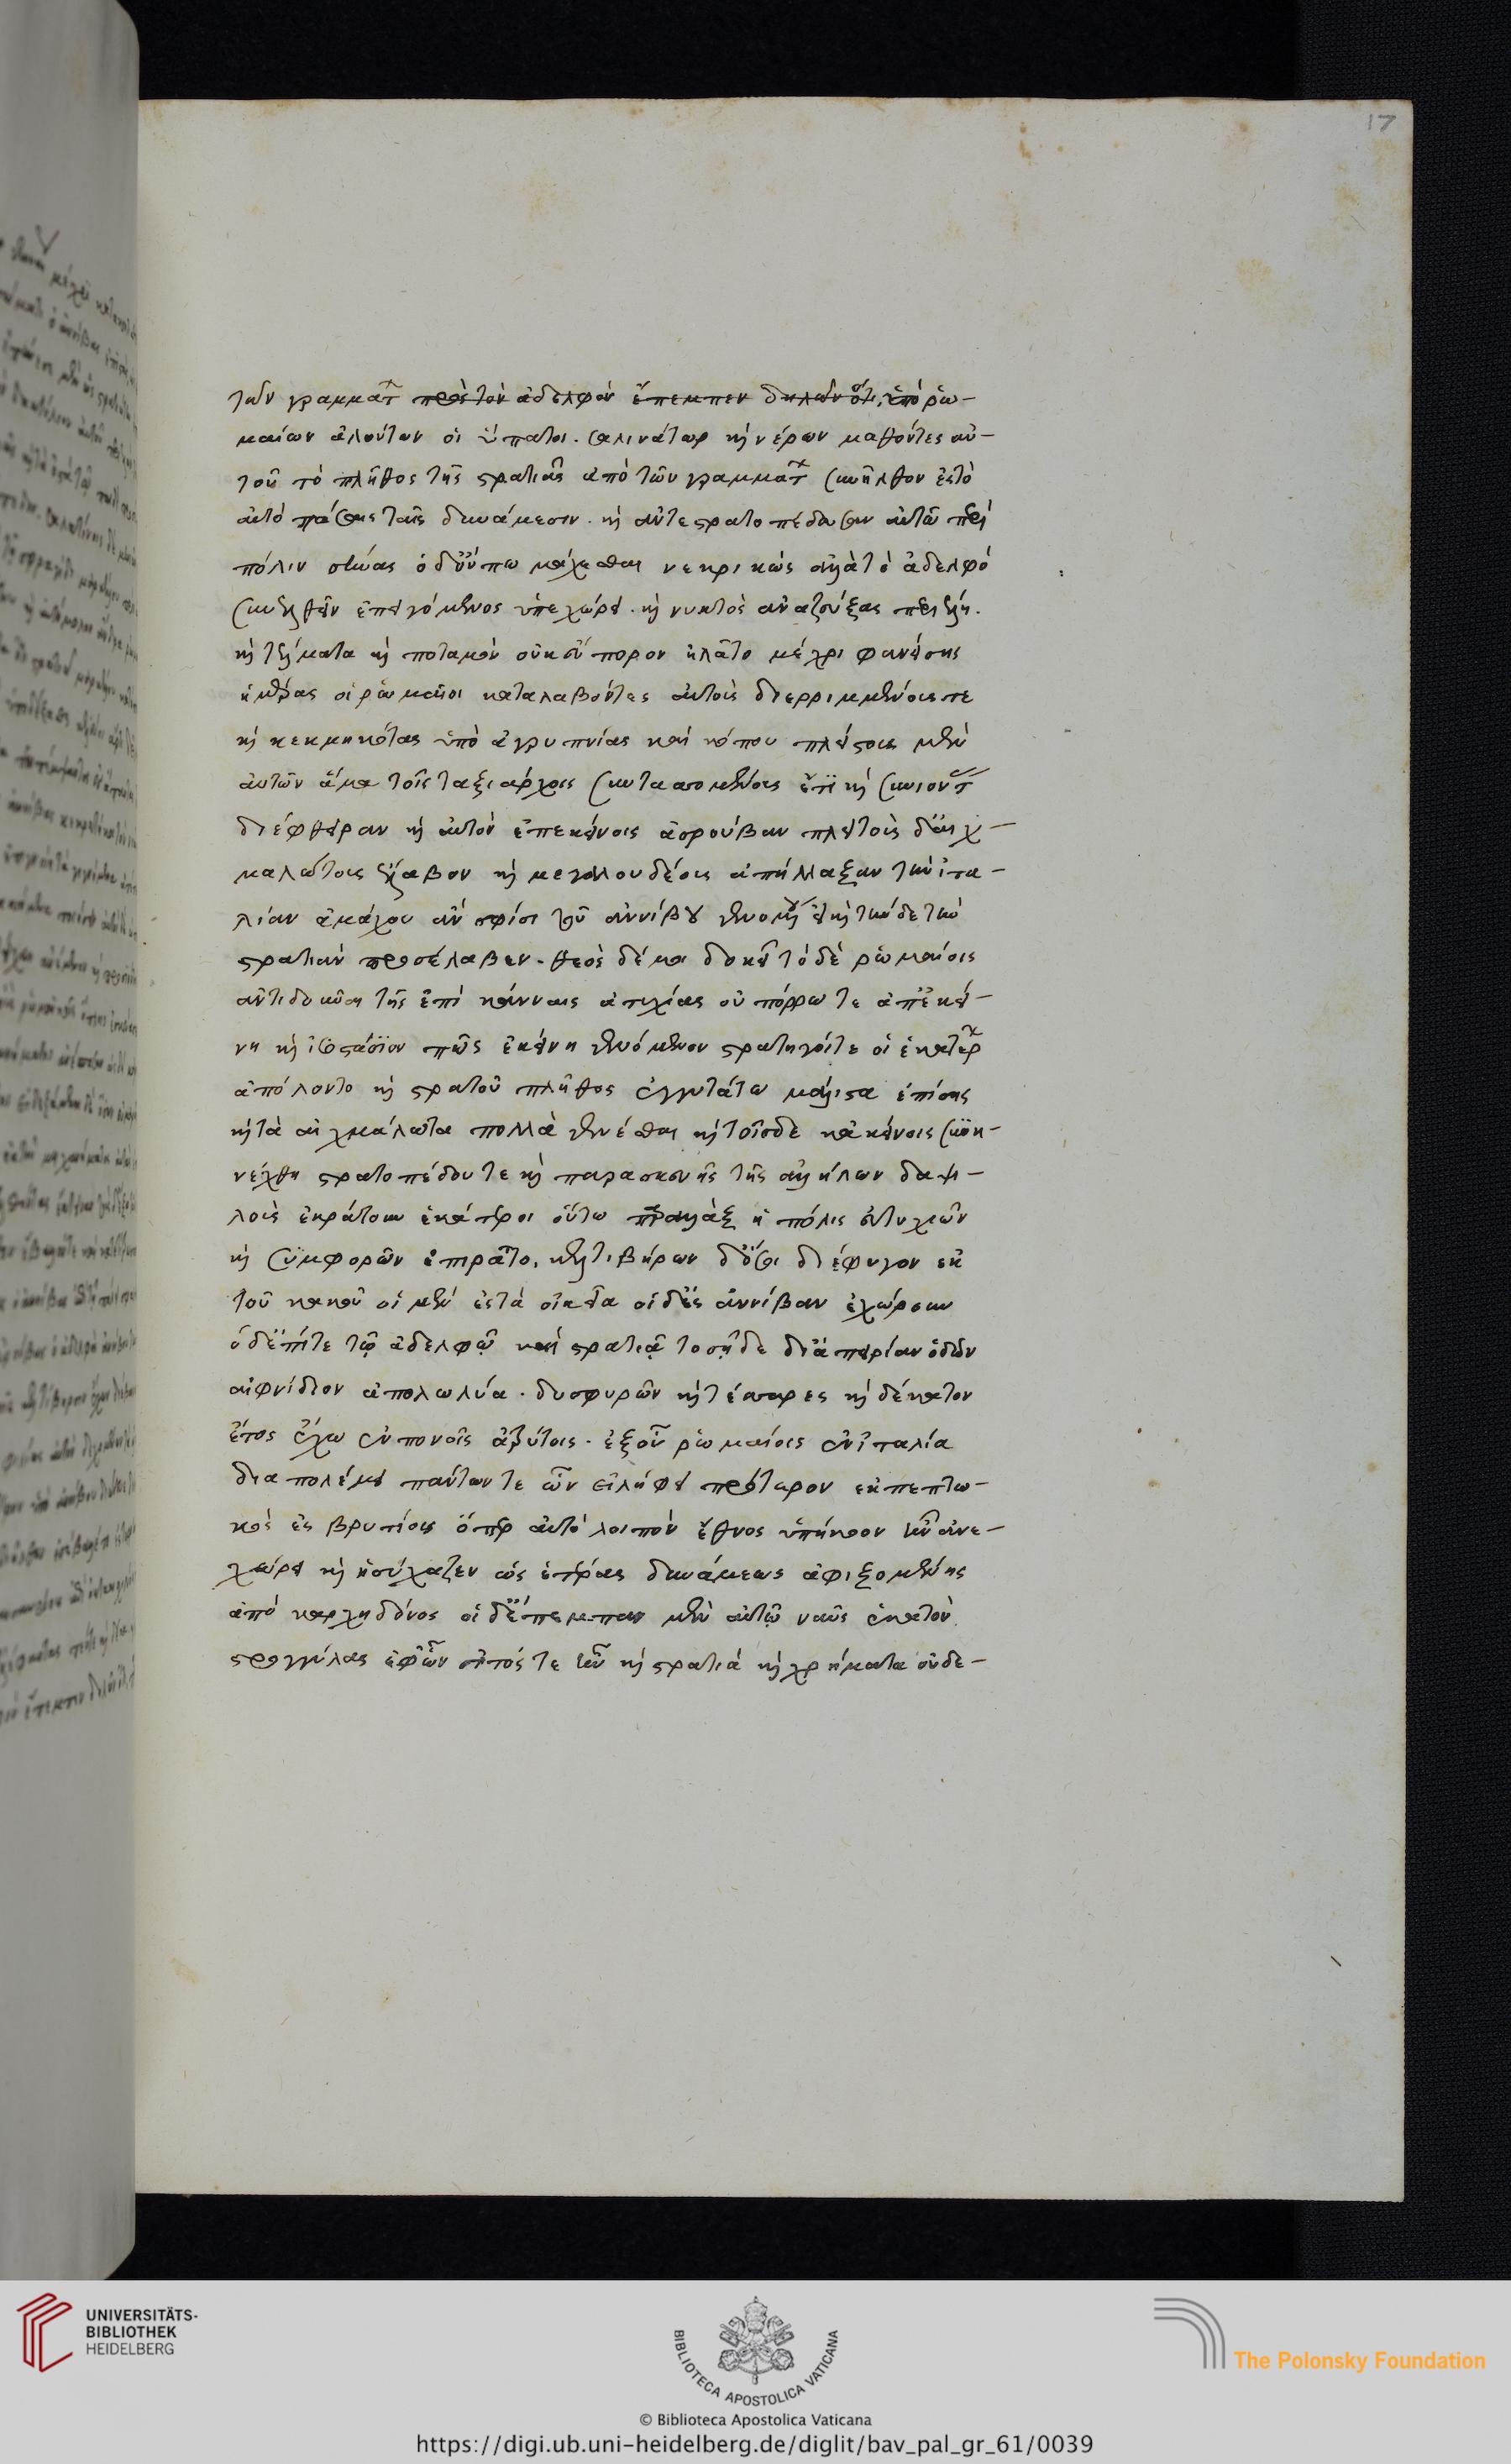 τῶν γραμματ πρὸς τὸν ἀδελφὸν ἔπεμπεν δηλῶν ὅτι, ὑπὸ ῥω-
μαίων ἁλόντων οἱ ὕπατοι. σαλινάτωρ καὶ νέρων μαθόντες αὐ-
τοῦ τὸ πλῆθος τῆς στρατιᾶς ἀπὸ τῶν γραμματ συνῆλθον ἐς τὸ
αὐτὸ πάσαις ταῖς δυνάμεσιν. καὶ ἀντεστρατοπέδευσαν αὐτῶ περὶ
πόλιν σήνας ὁ δ' οὔπω μάχεσθαι κεκρικὼς ἀλλὰ τῶ ἀδελφῶ
συνελθεῖν ἐπειγόμενος ὑπεχώρει. καὶ νυκτὸς ἀναζεύξας περὶ ἕλη.
καὶ τέλματα καὶ ποταμὸν οὐκ εὔπορον ἠλᾶτο μέχρι φανείσης
ἡμέρας οἱ ῥωμαῖοι καταλαβόντες αὐτοὺς διερριμμένους τε
καὶ κεκμηκότας ὑπὸ ἀγρυπνίας καὶ κόπου πλείστους μὲν
αὐτῶν ἅμα τοῖς ταξιάρχοις συντασσομένους ἔτι καὶ συνιόντ
διέφθειραν καὶ αὐτὸν ἐπ' ἐκείνοις ἀσρούβαν πλείστους δ' αἰχ-
μαλώτους ἔλαβον καὶ μεγάλου δέους ἀπήλλαξαν τὴν ἰτα-
λίαν ἀμάχου ἄν σφίσι τοῦ ἀννίβου γενομένου εἰ καὶ τήνδε τὴν
στρατιὰν προσέλαβεν. θεὸς δέ μοι δοκεῖ τόδε ῥωμαίοις
ἀντιδοῦναι τῆς ἐπὶ κάνναις ἀτυχίας οὐ πόρρω τε ἀπ' ἐκεί-
νη καὶ ἰσοστάσιον πως ἐκείνη γενόμενον στρατηγοί τε οἱ ἑκατέρ
ἀπόλοντο καὶ στρατοῦ πλῆθος ἐγγυτάτω μάλιστα ἐπίσης
καὶ τὰ αἰχμάλωτα πολλὰ γενέσθαι καὶ τοῖσδε κἀκείνοις συνη-
νέχθη στρατοπέδου τε καὶ παρασκευῆς τῆς ἀλλήλων δαψι-
λοῦς ἐκράτουν ἑκάτεροι οὕτω παραλλὰξ ἡ πόλις εὐτυχιῶν
καὶ συμφορῶν ἐπειρᾶτο. κελτιβήρων δ' ὅσοι διέφυγον ἐκ
τοῦ κακοῦ οἱ μὲν ἐς τὰ οἰκεῖα οἱ δ' ἐς ἀννίβαν ἐχώρουν
ὁ δ' ἐπί τε τῷ ἀδελφῷ καὶ στρατιᾷ τοσῇδε δι' ἀπειρίαν ὁδῶν
αἰφνίδιον ἀπολωλυία. δυσφορῶν καὶ τέσσαρες καὶ δέκατον
ἔτος ἔχων ἐν πόνοις ἀτρύτοις. ἐξ οὗ ῥωμαίοις ἐν ἰταλία
διαπολέμει πάντων τε ὧν εἰλήφει πρότερον ἐκπεπτω-
κὼς ἐς βρυτίους ὅπερ αὐτῶ λοιπὸν ἔθνος ὑπήκοον ἦν ἀνε-
χώρει καὶ ἡσύχαζεν ὡς ἑτέρας δυνάμεως ἀφιξομένης
ἀπὸ καρχηδόνος οἱ δ' ἔπεμπαν μὲν αὐτῷ ναῦς ἑκατὸν
στρογγύλας ἐφ' ὧν σῖτός τε ἦν καὶ στρατιὰ καὶ χρήματα οὐδε-
17
UNIVERSITÄTS-
BIBLIOTHEK
HEIDELBERG
BIBLIOTECA APOSTOLICA VATICANA
The Polonsky Foundation
© Biblioteca Apostolica Vaticana
https://digi.ub.uni-heidelberg.de/diglit/bav_pal_gr_61/0039